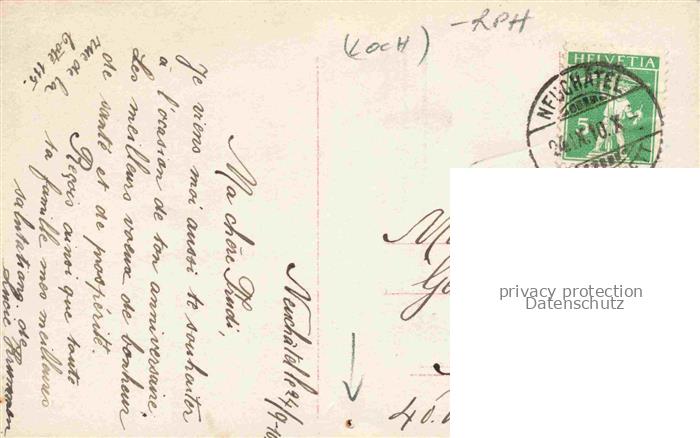 (LOCH)
-RPH
HELVETIA
5
NEUCHÂTEL
24.IX.10.X
Neuchâtel le 24/9-10
Ma chère Trudi,
Je viens moi aussi te souhaiter
à l'ocasion de ton anniversaire,
Les meilleurs voeux de bonheur
de santé et de prospérité.
Reçois ainsi que toute
ta famille mes meilleures
salutations de
Lucie
rue de la
Côte 115.
M
40.
privacy protection
Datenschutz